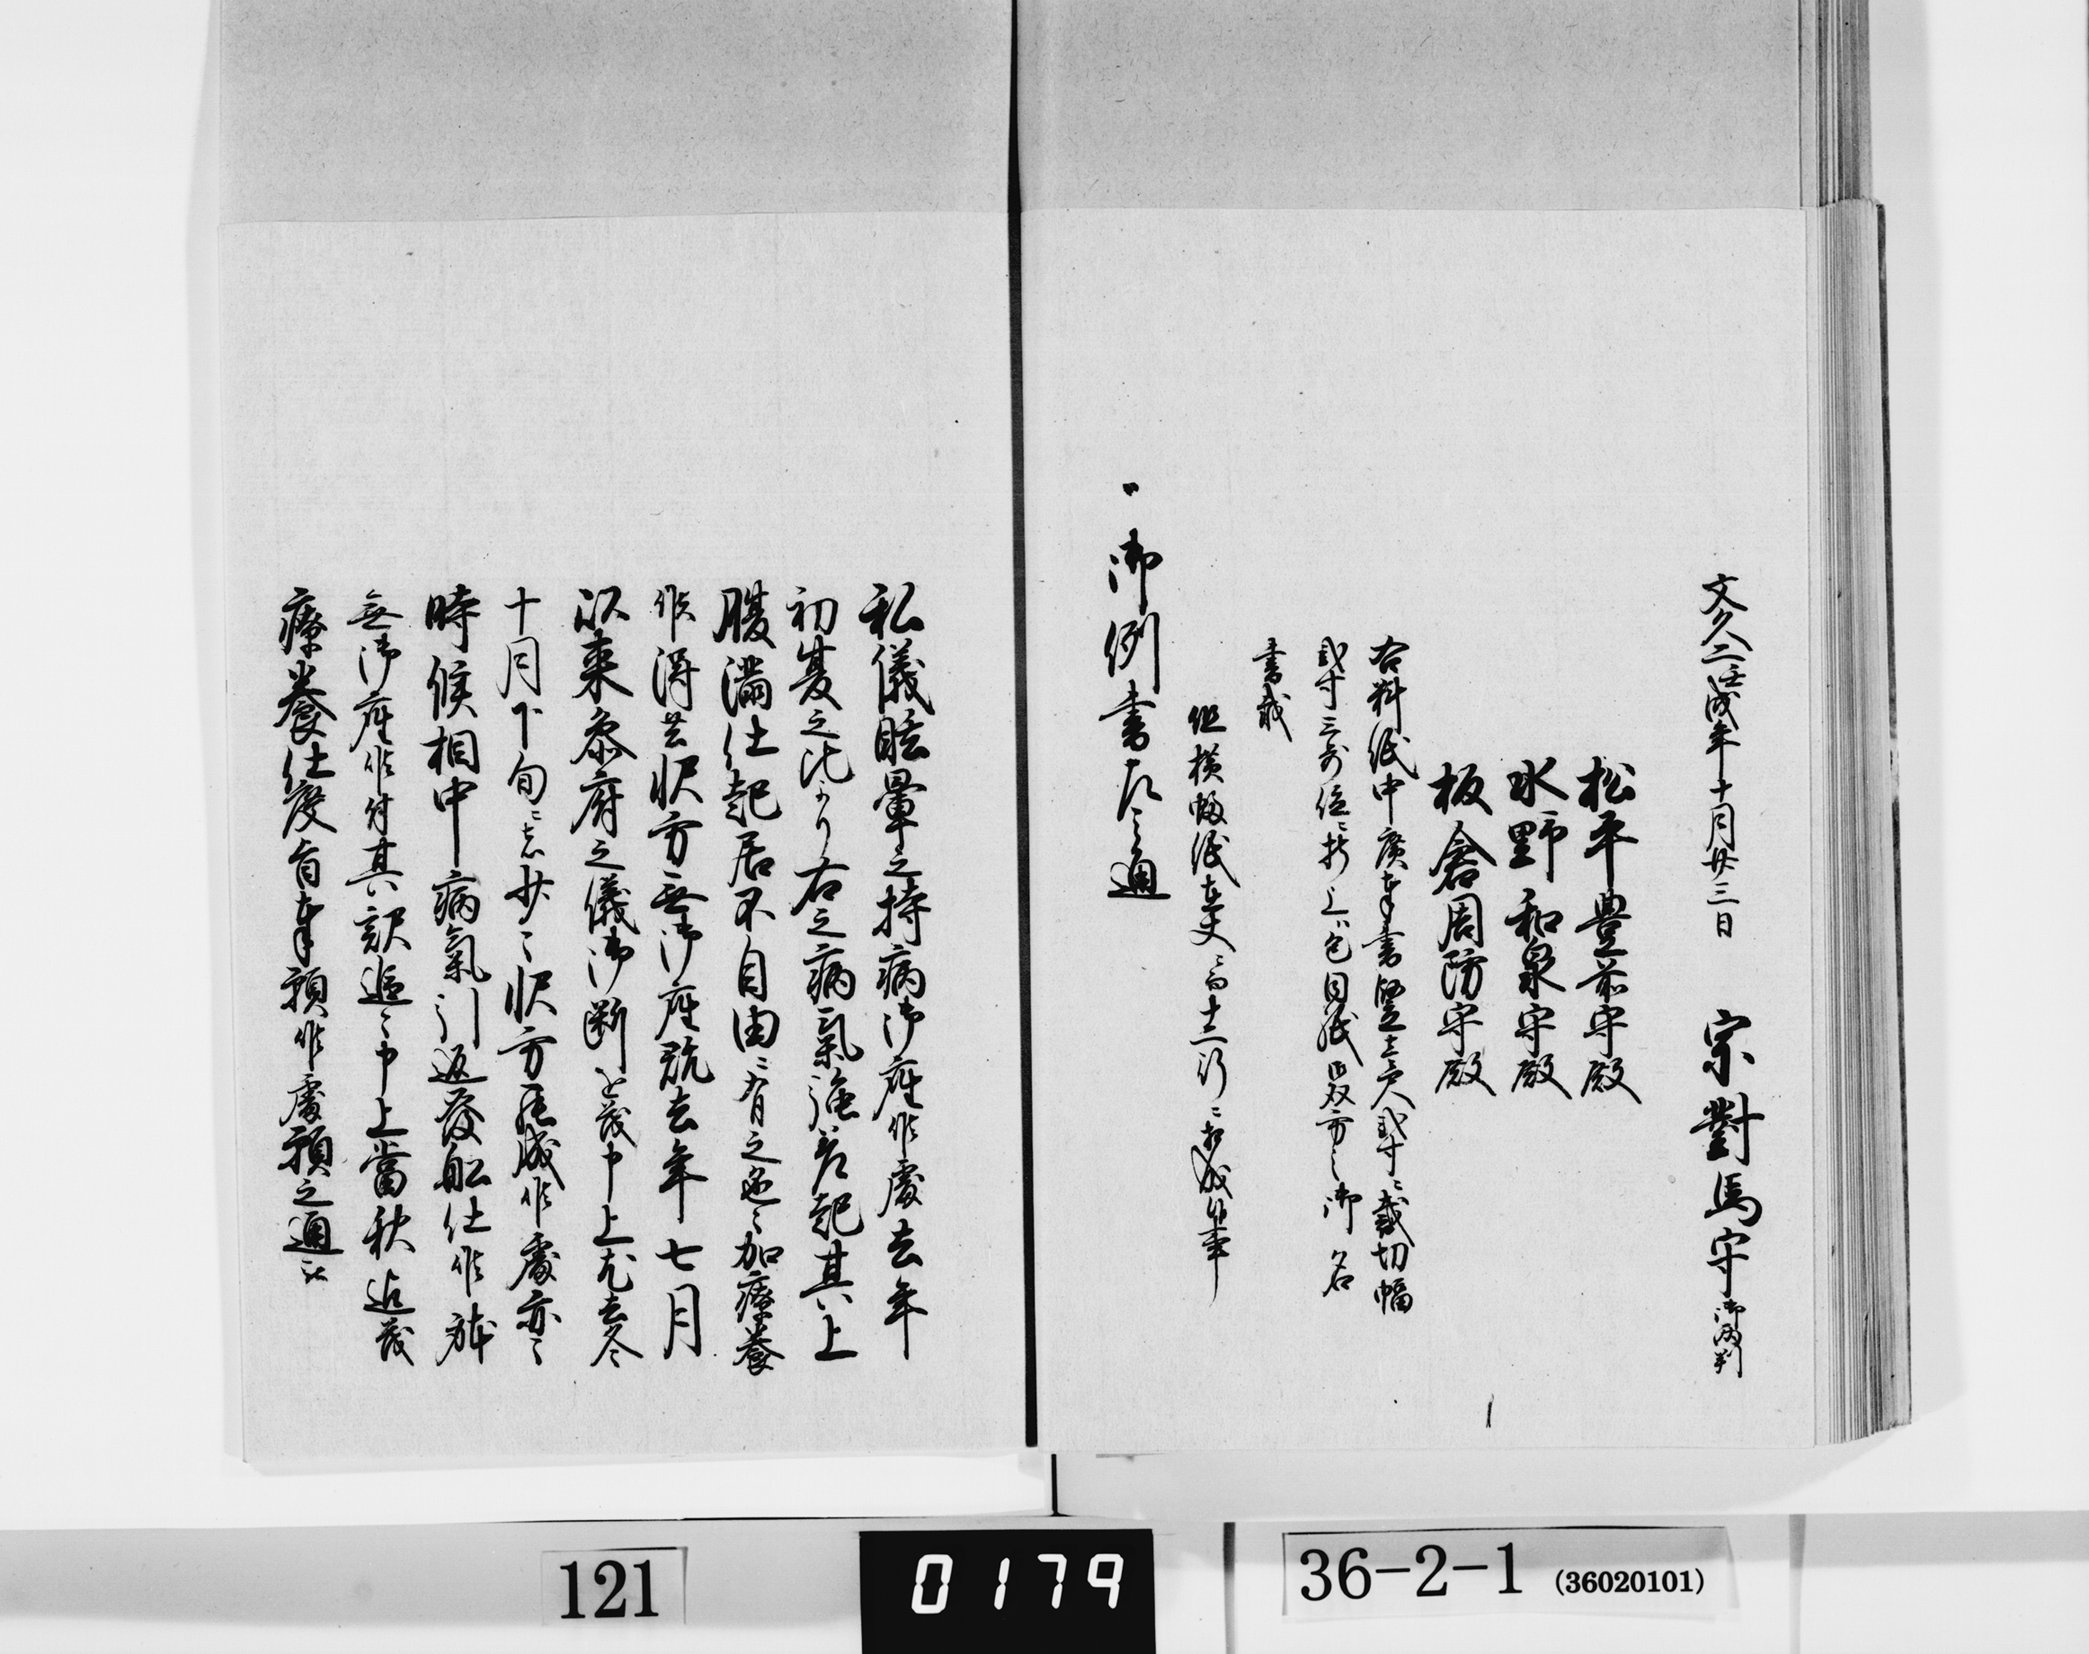 文久二壬戌年十月廿三日　宗對馬守御両判
松平豊前守殿
水野和泉守殿
板倉周防守殿
右料紙中廣奉書竪壱尺貳寸ニ裁切幅
貳寸三歩位ニ折上ハ包同紙皆双方之御名
書載
但横幅紙壱丈ニ而十三行ニ相成候事
一御例書左之通
私儀眩暈之持病御座候處去年
初夏之比より右之病氣強差起其上
腹満仕起居不自由ニ有之追々加療養
候得共収方無御座既去年七月
以来参府之儀御断をも茂申上尤去冬
十月下旬ニ至少々収方罷成候處亦々
時候相中病氣引返發船仕候躰
無御座候付其訳追々申上當秋迄茂
療養仕度旨奉願候處願之通被
121
0179
36-2-1 (36020101)